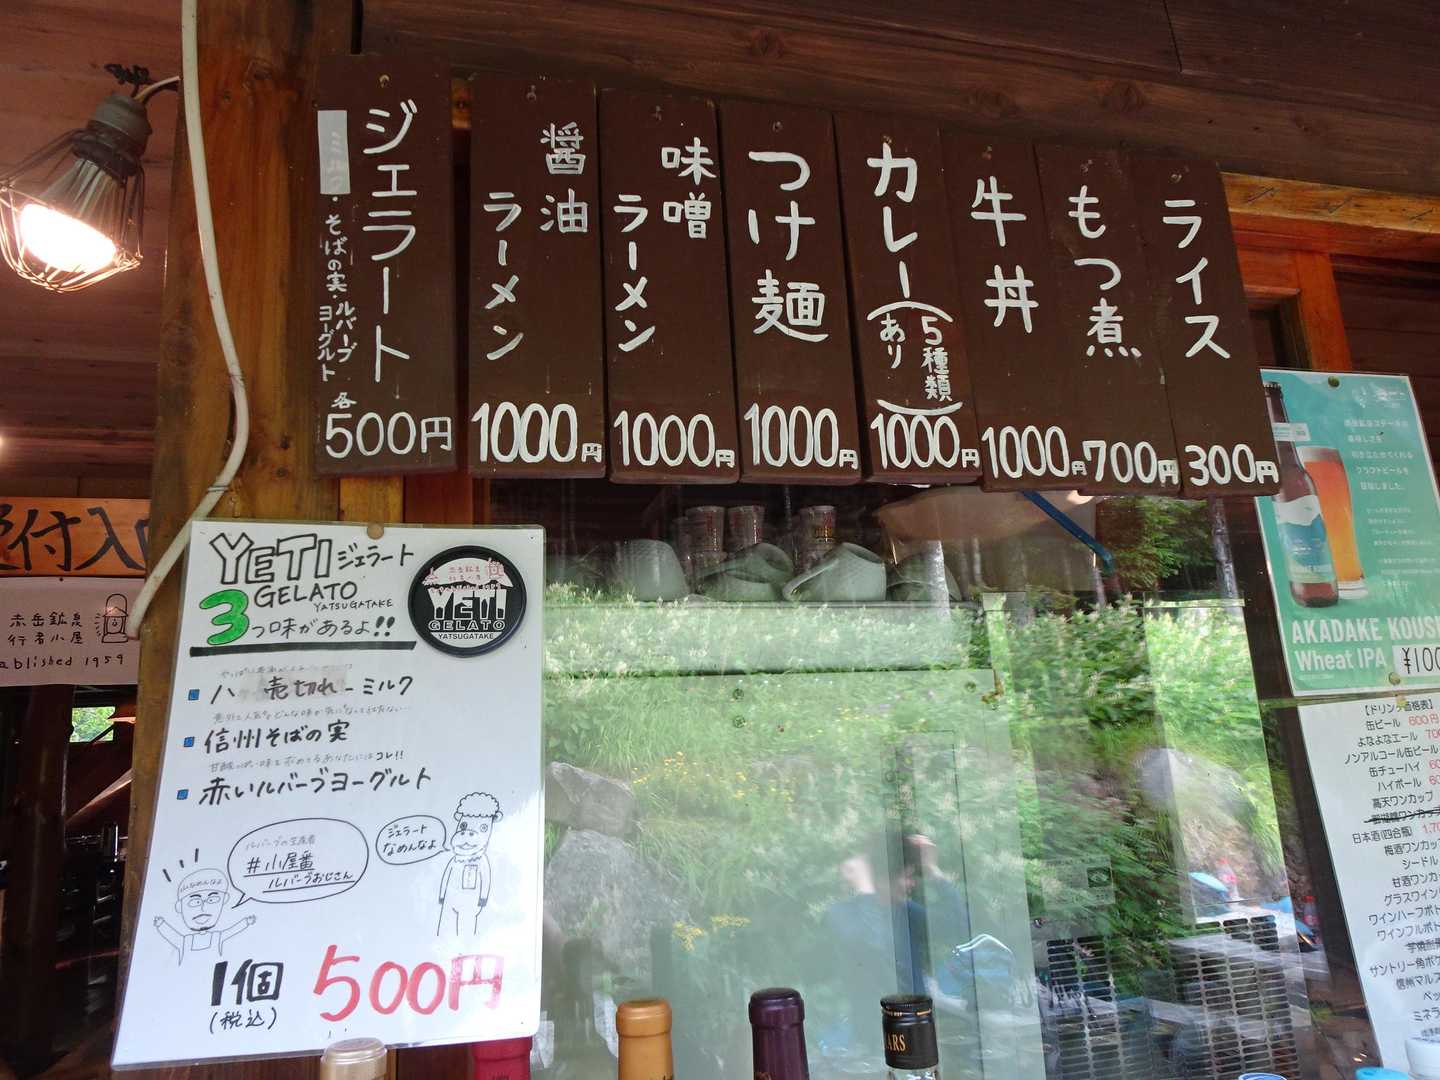 ジェラート
・そばの実・ルバーブヨーグルト
各
500円
醤油
ラーメン
1000円
味噌
ラーメン
1000円
つけ麺
1000円
カレー
(5種類
あり)
1000円
牛丼
1000円
もつ煮
700円
ライス
300円
付入
赤岳鉱泉
行者小屋
ablished 1959
YETI ジェラート
GELATO
YATSUGATAKE
3つ味があるよ!!
YETI
GELATO
YATSUGATAKE
売切れ
ーミルク
信州そばの実
赤いルバーブヨーグルト
ルバーブの生産者
#小屋番
ルバーブおじさん
ジェラート
なめんなよ
山なめんなよ
1個
(税込)
500円
引き立たせてくれる
クラフトビールを
目指しました。
AKADAKE KOUS
Wheat IPA
¥100
【ドリンク価格表】
缶ビール 600円
よなよなエール 700
ノンアルコール缶ビール
缶チューハイ 60
ハイボール 60
高天ワンカップ
日本酒(四合瓶) 1,70
梅酒ワンカップ
シードル
甘酒ワンカ
グラスワイン
ワインハーフボト
ワインフルボト
サントリー角ポケ
信州マルス
ペッ
ミネラ
ARS